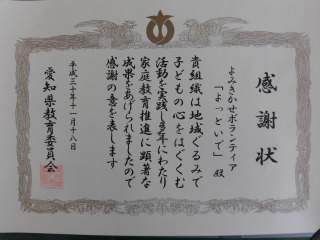 感謝状
よみきかせボランティア
「よっといで」殿
貴組織は地域ぐるみで
子どもの心をはぐくむ
活動を実践し多年にわたり
家庭教育推進に顕著な
成果をあげられましたので
感謝の意を表します
平成三十年十一月十八日
愛知県教育委員会